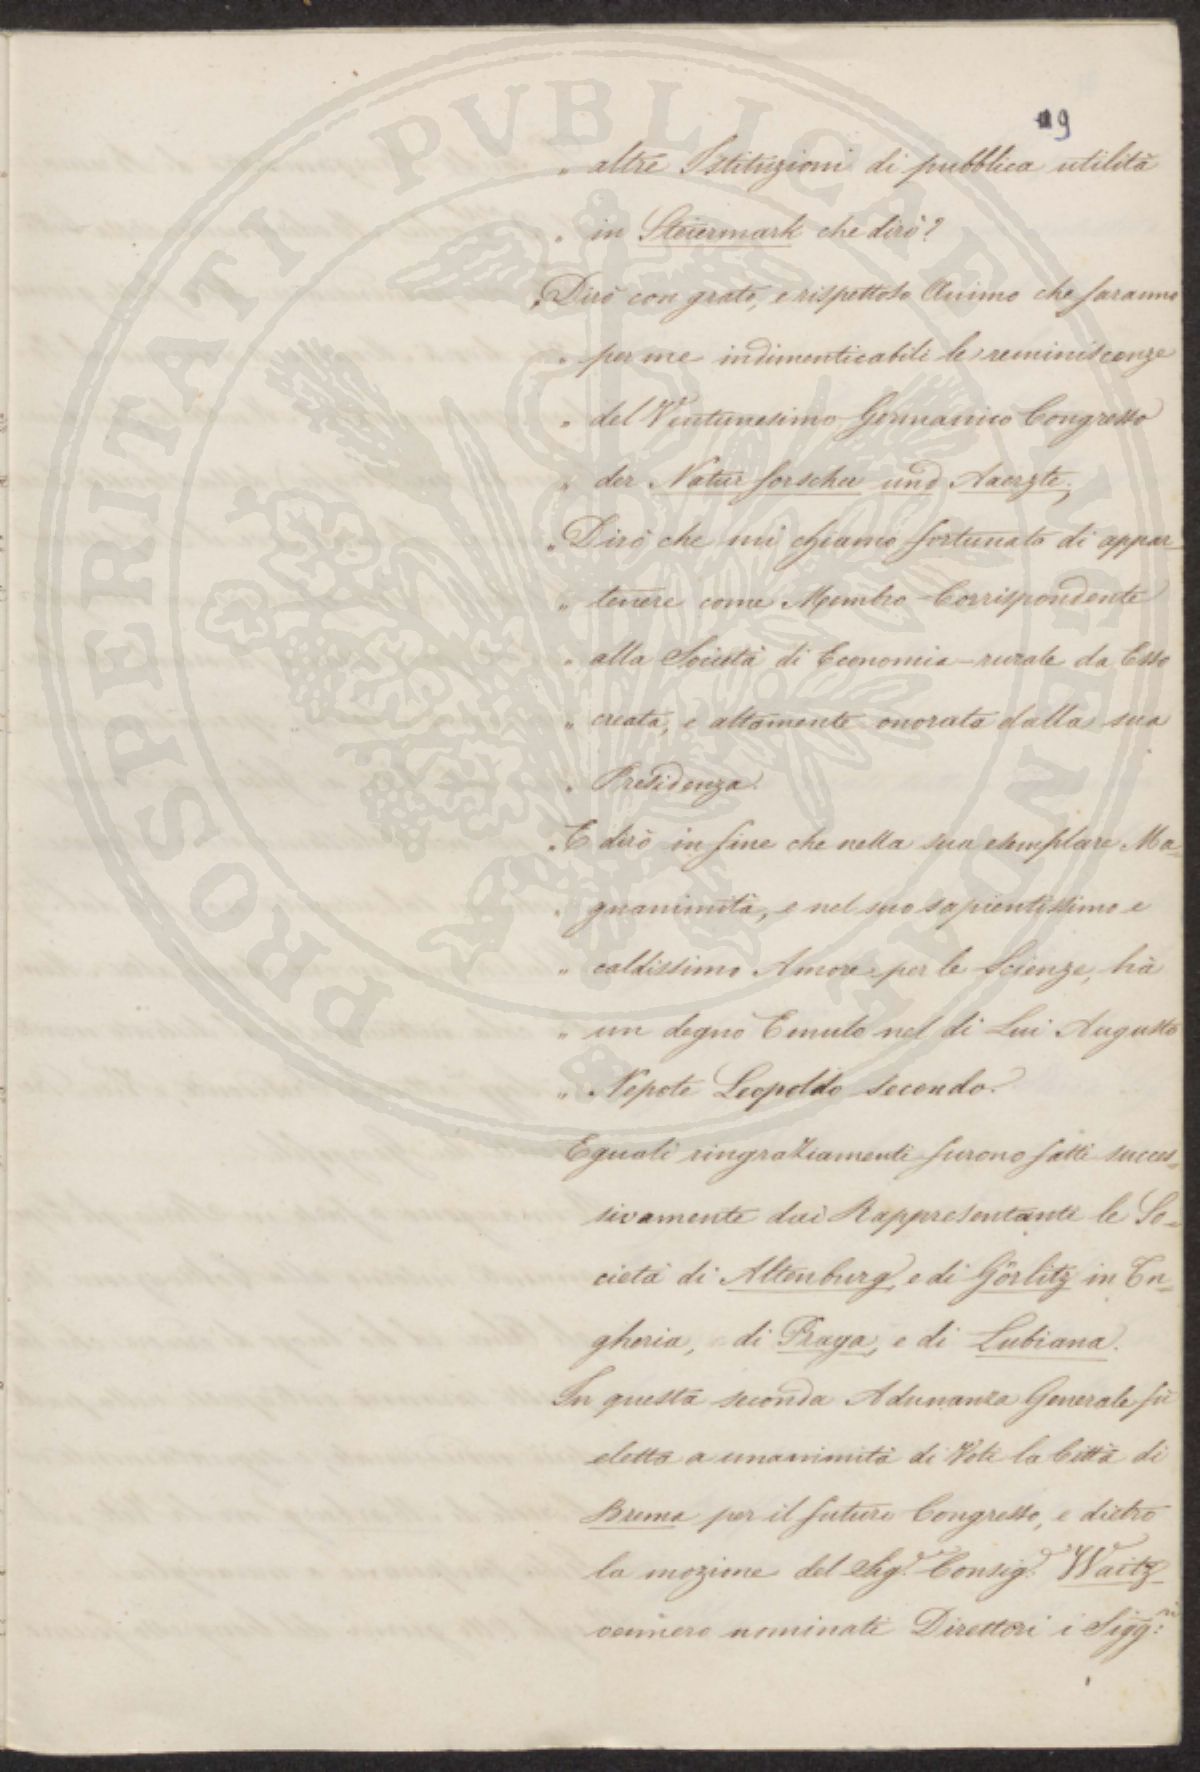 19
" altre Istituzioni di pubblica utilità
" in Steiermark che dirò?
"Dirò con grato, e rispettoso Animo che saranno
" per me indimenticabili le reminiscenze
" del Ventunesimo Germanico Congresso
" der Natur forscher und Aaerzte;
"Dirò che mi chiamo fortunato di appar-
" tenere come Membro Corrispondente
" alla Società di Economia-rurale da Esso
" creata, e altamente onorata dalla sua
" Presidenza.
"E dirò in fine che nella sua esemplare Ma-
" gnanimità, e nel suo sapientissimo e
" caldissimo Amore per le Scienze, hà
" un degno Emulo nel di Lui Augusto
" Nepote Leopoldo secondo.
Eguali ringraziamenti furono fatti succes-
sivamente dai Rappresentanti le So-
cietà di Altenburg, e di Görlitz in Un-
gheria, di Praga, e di Lubiana.
In questa seconda Adunanza Generale fù
eletta a unanimità di Voti la Città di
Brema per il futuro Congresso, e dietro
la mozione del Sig.r Consig.r Waitz
vennero nominati Direttori i Sigg:ri
PROSPERITATI PVBLICAE AVGENDAE